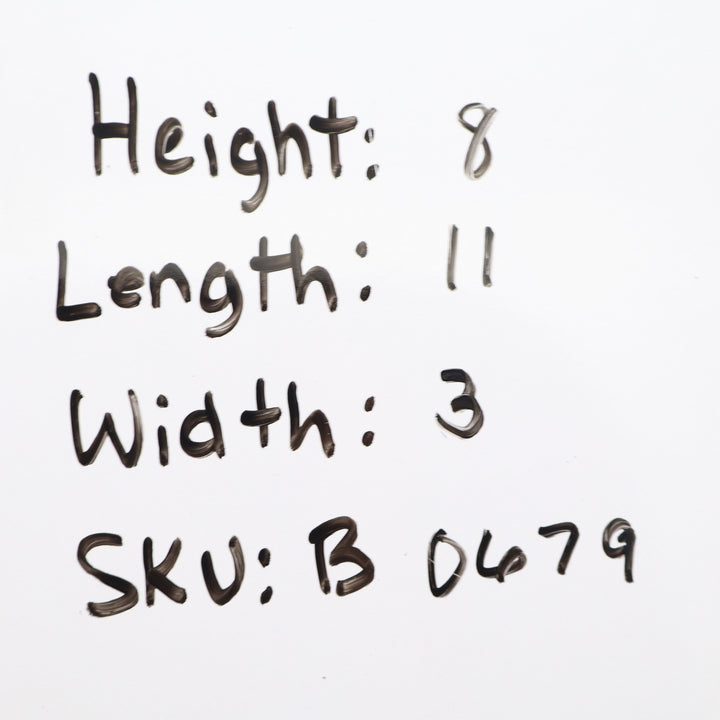 Height: 8
Length: 11
Width: 3
SKU: B 0679